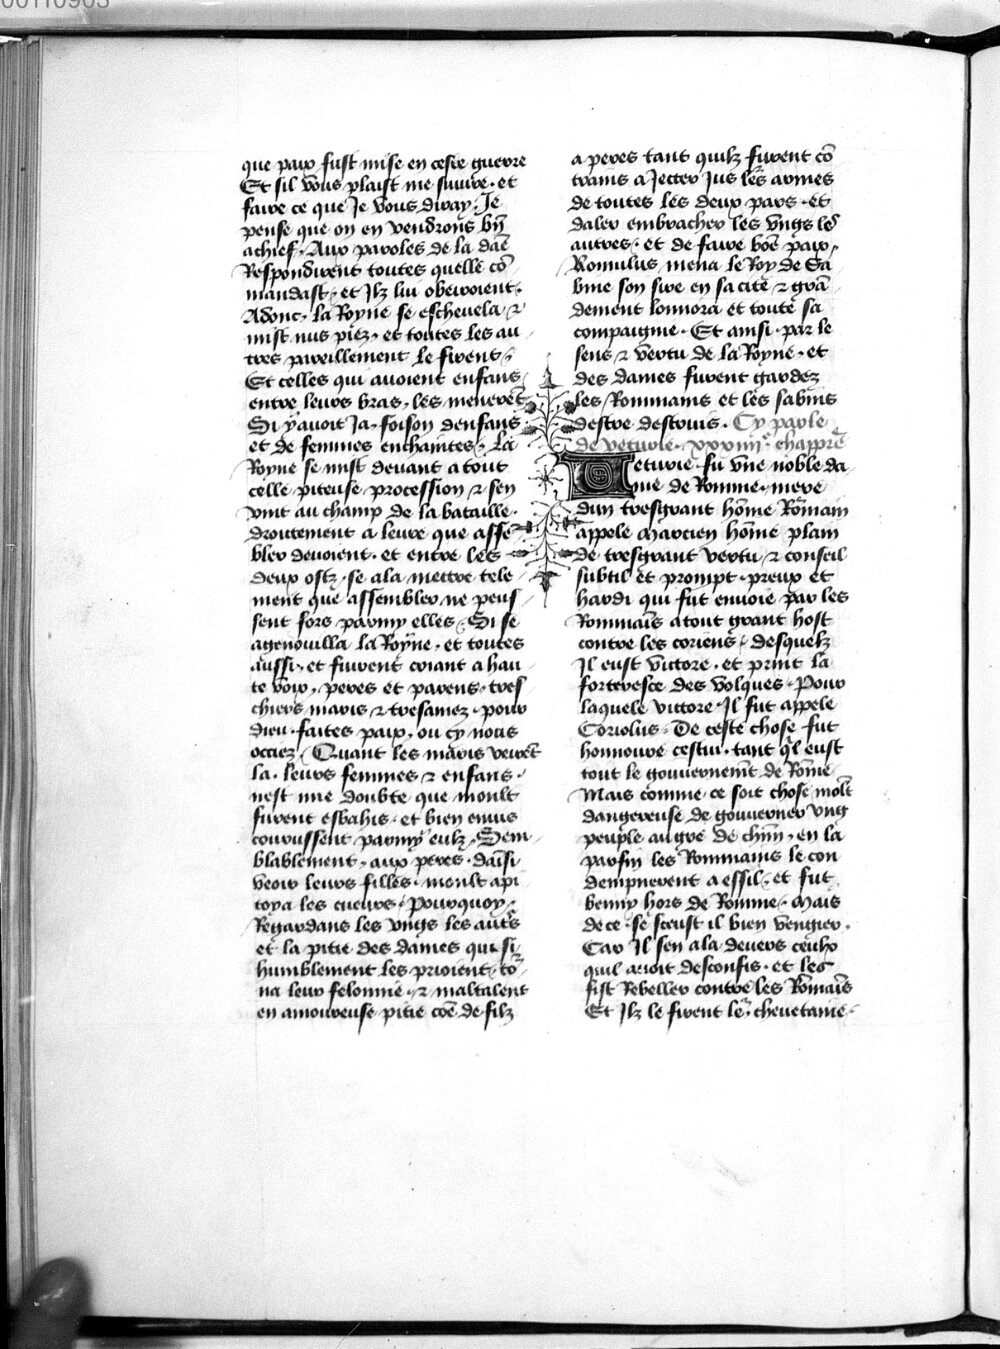 00110903
que paix fust mise en ceste guerre
Et sil vous plaist me suivre · et
faire ce que Je vous diray · Je
pense que on en vendrons bn̄
achief · Aux paroles de la dāe
Respondirent toutes quelle cō
mandast · et Ilz lui obeiroient ·
Adonc · la Royne se eschevela · ⁊
mist nus piez · et toutes les au
tres pareillement le firent ·
Et celles qui avoient enfans
entre leurs bras · les menerēt
Si y avoit Ja · foison denfans
et de femmes enchaintes · La
Royne se mist devant a tout
celle piteuse procession ⁊ sen
vint au champ de la bataille ·
droitement a leure que asse
bler devoient · et entre les
deux ostz · se ala mettre tele
ment que assembler ne peus
sent fors parmy elles · Si se
agenouilla la Royne · et toutes
aussi · et furent criant a hau
te voix · peres et parens · tres
chiers maris ⁊ tresamez · pour
dieu · faites paix · ou cy nous
occiez · Quant les maris veirēt
la · leurs femmes ⁊ enfans ·
nest mie doubte que moult
furent esbahis · et bien envis
courussent parmy eulx · Sem
blablement · aux peres · dainsi
veoir leurs filles · moult api
toya les cueurs · Pourquoy ·
Regardans les ungs les autr̄s
et la pitie des dames qui si
humblement les prioient · to͛
na leur felonnie · ⁊ maltalent
en amoureuse pitie cōe de filz
a peres tant quilz furent cō
trains a Jecter Jus les armes
de toutes les deux pars · et
daler embracher les ungs les
autres · et de faire bōe paix ·
Romulus mena le Roy de Sa
bine son sire en sa cite ⁊ grā
dement lonnora et toute sa
compaignie · Et ainsi · par le
sens ⁊ vertu de la Royne · et
des dames furent gardez
les Rommains et les sabins
destre destruis · Cy parle
de veturie · xxxiiiie chapprē
Veturie · fu vne noble da
me de Romme · mere
dun tresgrant hōme Rōmain
appele marcien hōme plain
de tresgrant vertu ⁊ conseil
subtil et prompt · preux et
hardi qui fut envoie par les
Rommains a tout grant host
contre les coriens · desquelz
Il eust victore · et print la
forteresce des volques · Pour
laquele victore · Il fut appele
Coriolus · De ceste chose fut
honnoure cestui · tant q̄l eust
tout le gouvernemēt de Rōme
Mais comme · ce soit chose molt
dangereuse de gouverner ung
peuple au gre de chūn · en la
parfin les Rommains le con
dempnerent a essil · et fut
banny hors de Romme · Mais
de ce · se sceust il bien vengier ·
Car Il sen ala devers ceulx
quil avoit desconfis · et les
fist Rebeller contre les Rōmaīs
Et Ilz le firent le͛ chevetaine ·